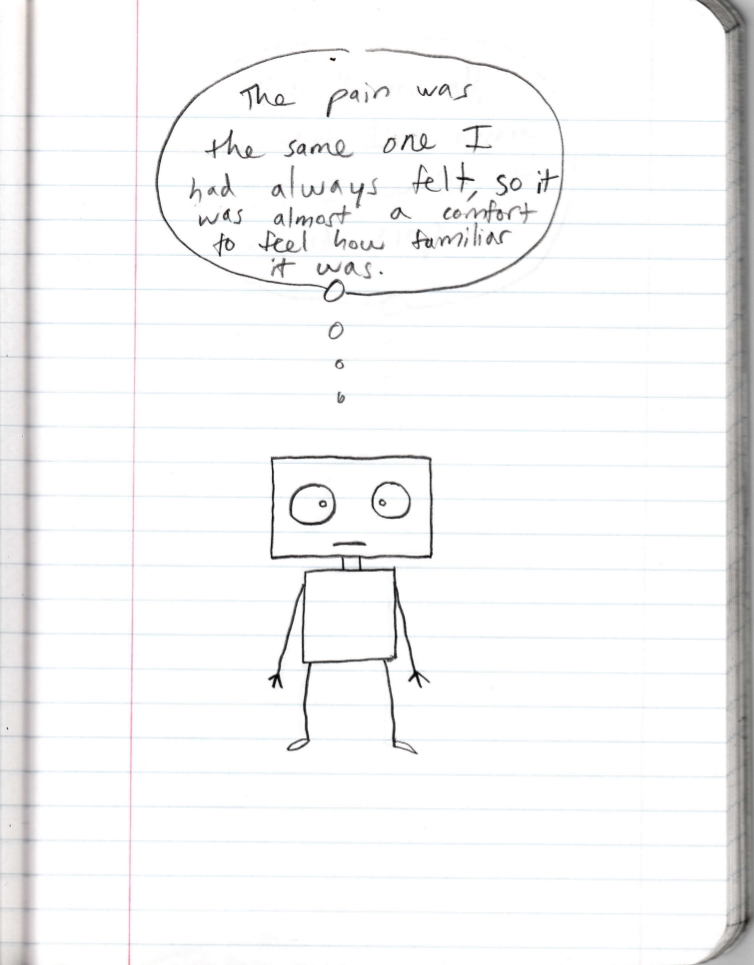 The pain was
the same one I
had always felt, so it
was almost a comfort
to feel how familiar
it was.